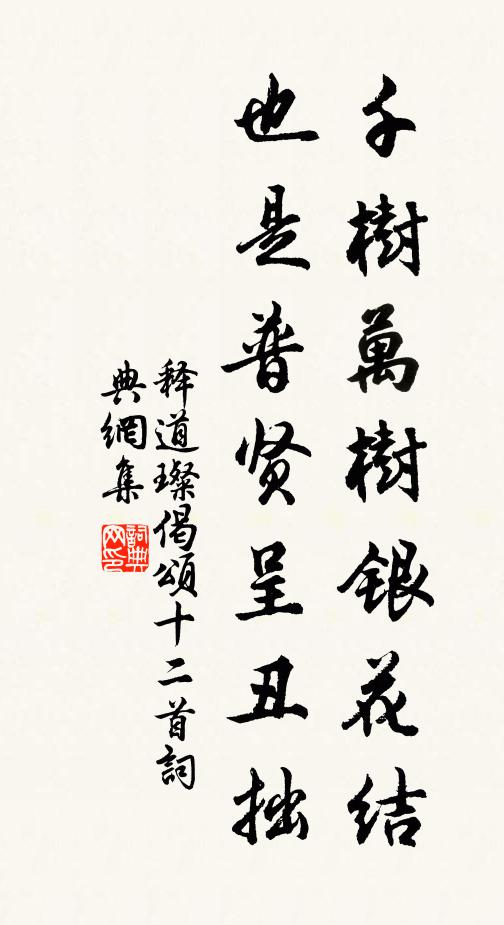 千樹萬樹銀花结
也是普贤呈丑拙
释道璨偈頌十二首詞
典網集
詞典網印